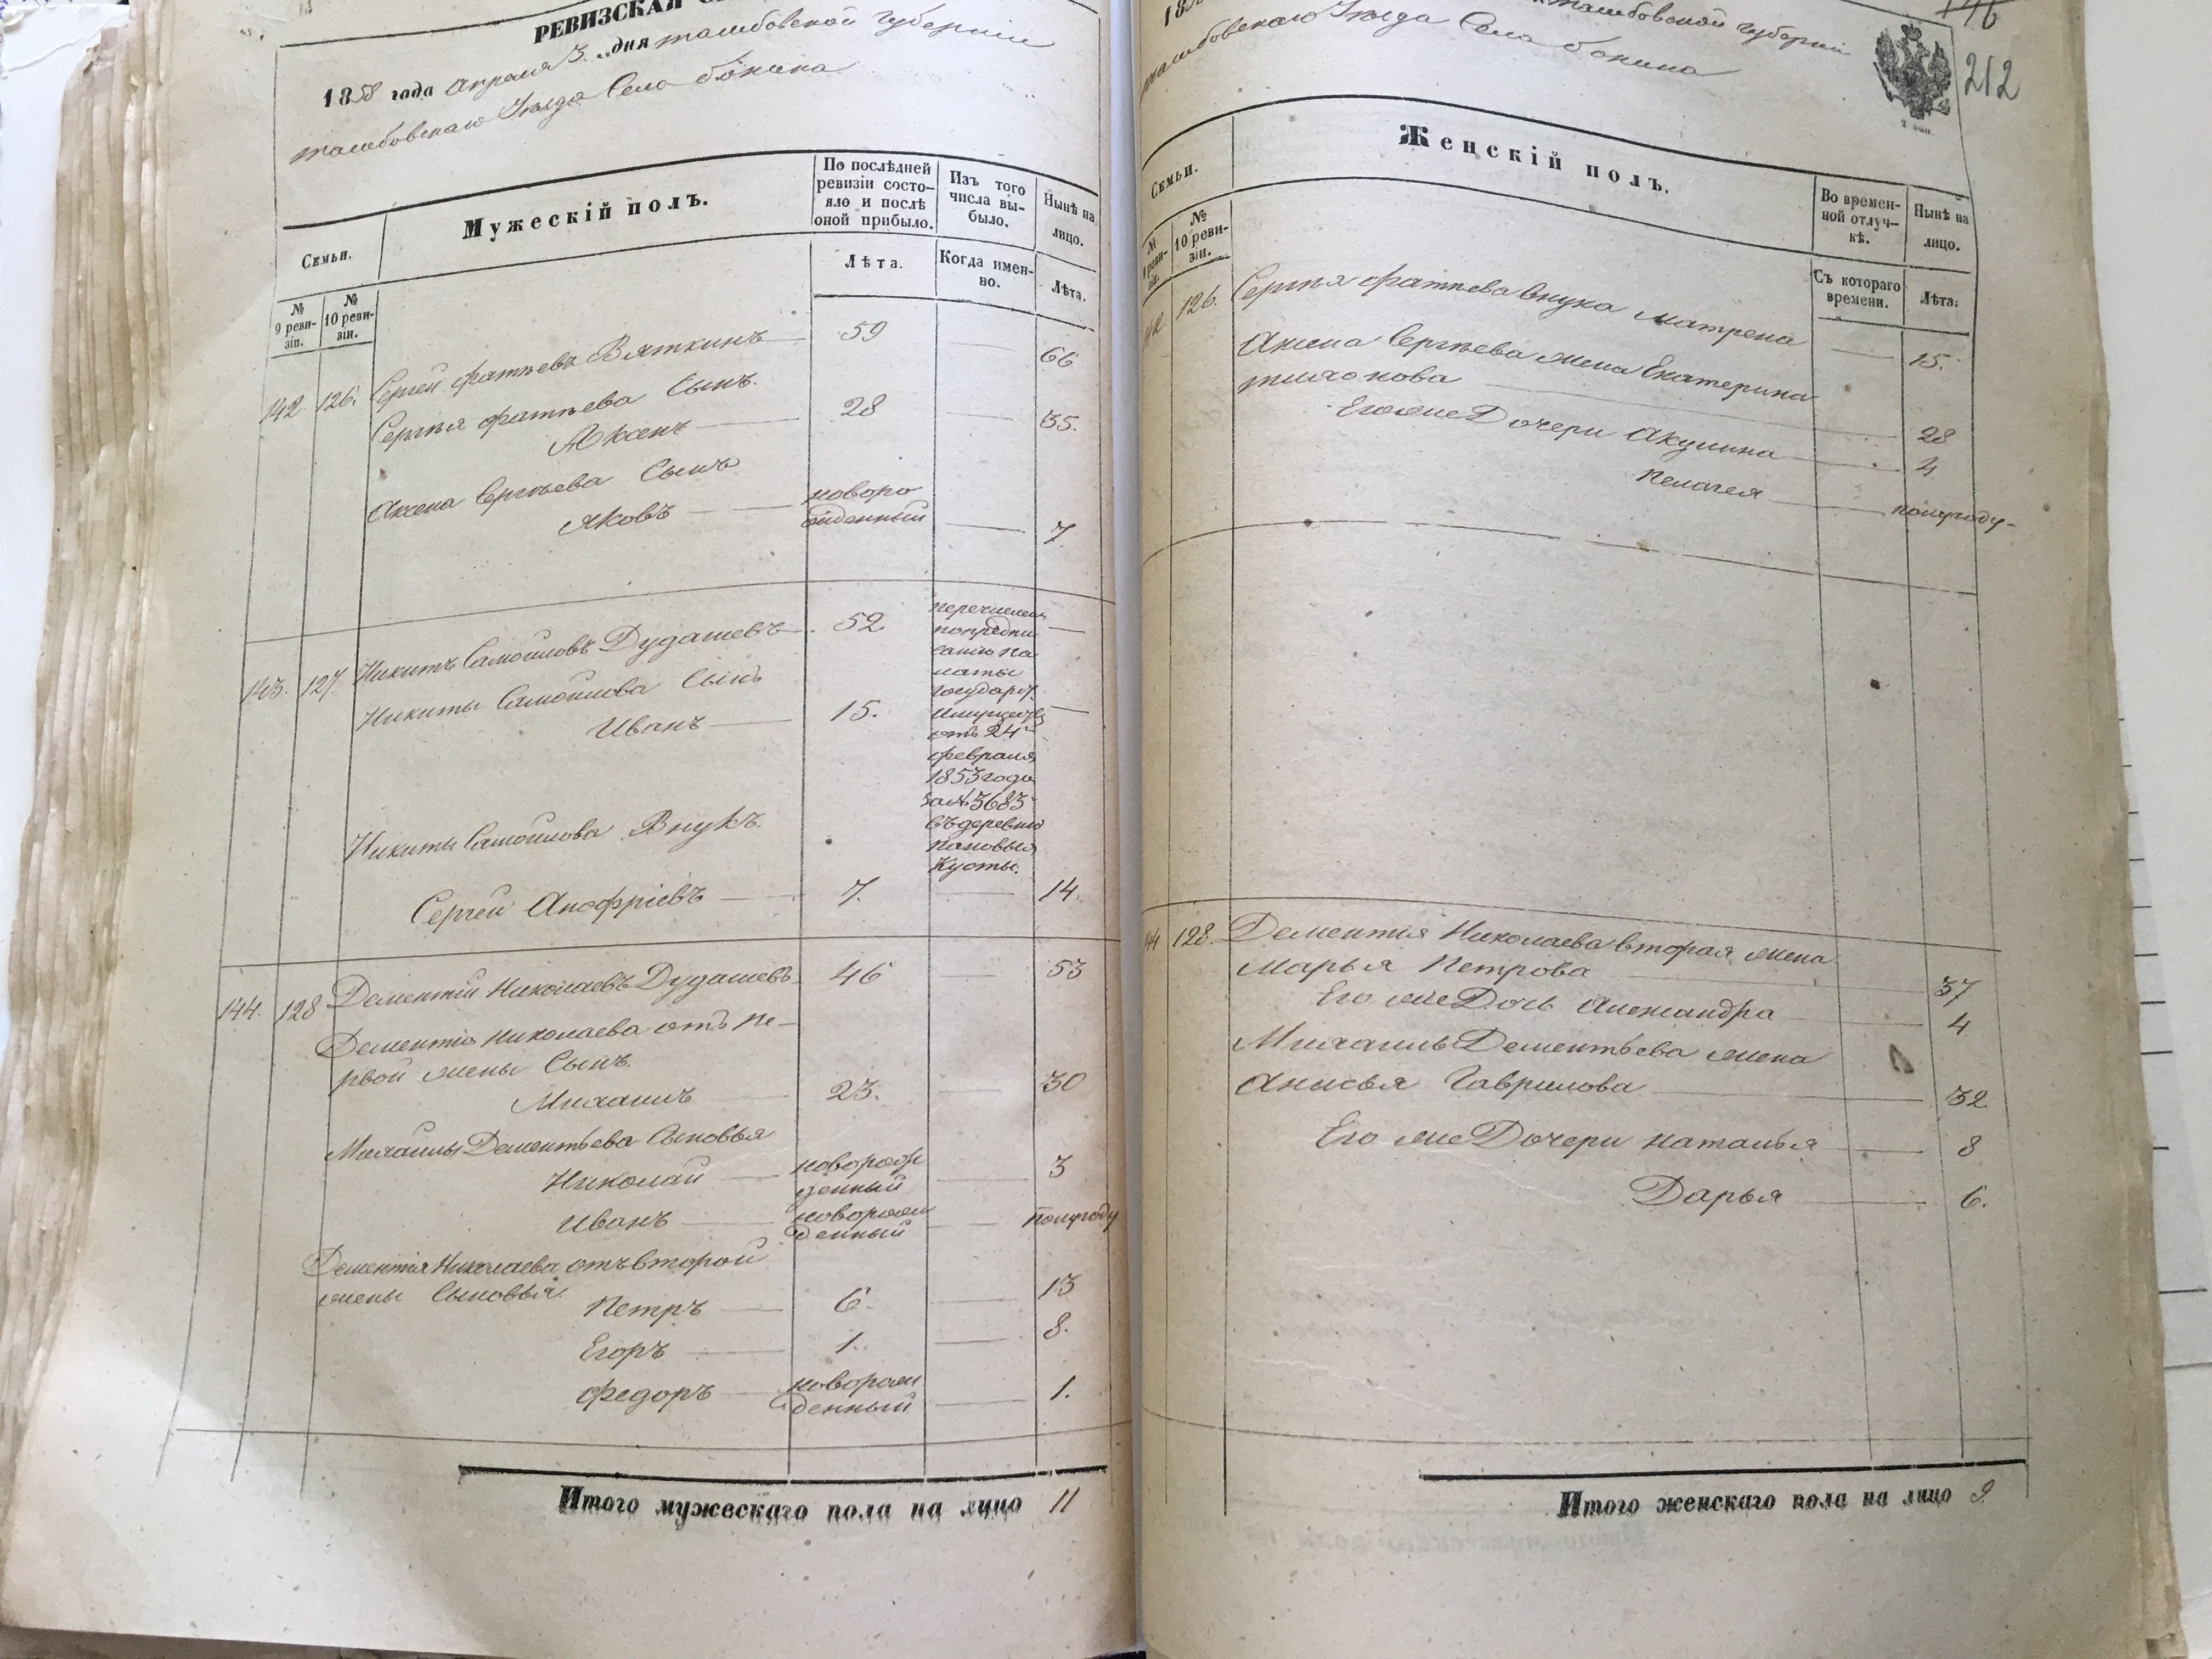 РЕВИЗСКАЯ
1858 года Апреля 3 дня тамбовской Губернии
тамбовскаго Уезда Села бокина
Семьи.
Мужескій полъ.
По послѣдней ревизіи состо-
яло и послѣ оной прибыло.
Изъ того числа вы-
было.
Нынѣ на лицо.
№ 9 реви-
зіи.
№ 10 реви-
зіи.
Лѣта.
Когда имен-
но.
Лѣта.
142 126. Сергей фатѣевъ Вяткинъ 59 66
Сергѣя фатѣева Сынъ.
Аксенъ 28 35.
Аксена Сергѣева Сынъ
Яковъ новоро
жденный 7
143. 127. Никитъ Самойловъ Дудашевъ 52
Никиты Самойлова Сынъ
Иванъ 15.
перечислен
попредпи
санію па
латы
государст.
имуществ
отъ 24
февраля
1853 года
за № 3683
въ деревню
пановыя
Кусты.
Никиты Самойлова Внукъ.
Сергей Анофріевъ 7. 14.
144. 128 Дементій Николаевъ Дудашевъ 46 53
Дементія Николаева отъ пе-
рвой жены Сынъ.
Михаилъ 23. 30
Михаилы Дементьева Сыновья
Николай новорож
денный 3
Иванъ новорож
денный полугоду
Дементія Николаева отъ второй
жены Сыновья.
Петръ 6. 13
Егоръ 1. 8.
Федоръ новорож
денный 1.
Итого мужескаго пола на лицо 11
тамбовской губерніи
тамбовскаго Уезда Села бокина
146
212
2 коп.
Семьи.
Женскій полъ.
Во времен-
ной отлуч-
кѣ.
Нынѣ на лицо.
№ 9 реви-
зіи.
№ 10 реви-
зіи.
Съ котораго времени.
Лѣта.
142 126. Сергѣя фатѣева внука матрена 15.
Аксена Сергѣева жена Екатерина
тихонова 28
Его же Дочери Акулина 4
Пелагея полугоду
144 128. Дементія Николаева вторая жена
Марья Петрова 37
Его же Дочь Александра 4
Михаилы Дементьева жена
Анисья Гаврилова 32
Его же Дочери наталья 8
Дарья 6.
Итого женскаго пола на лицо 9